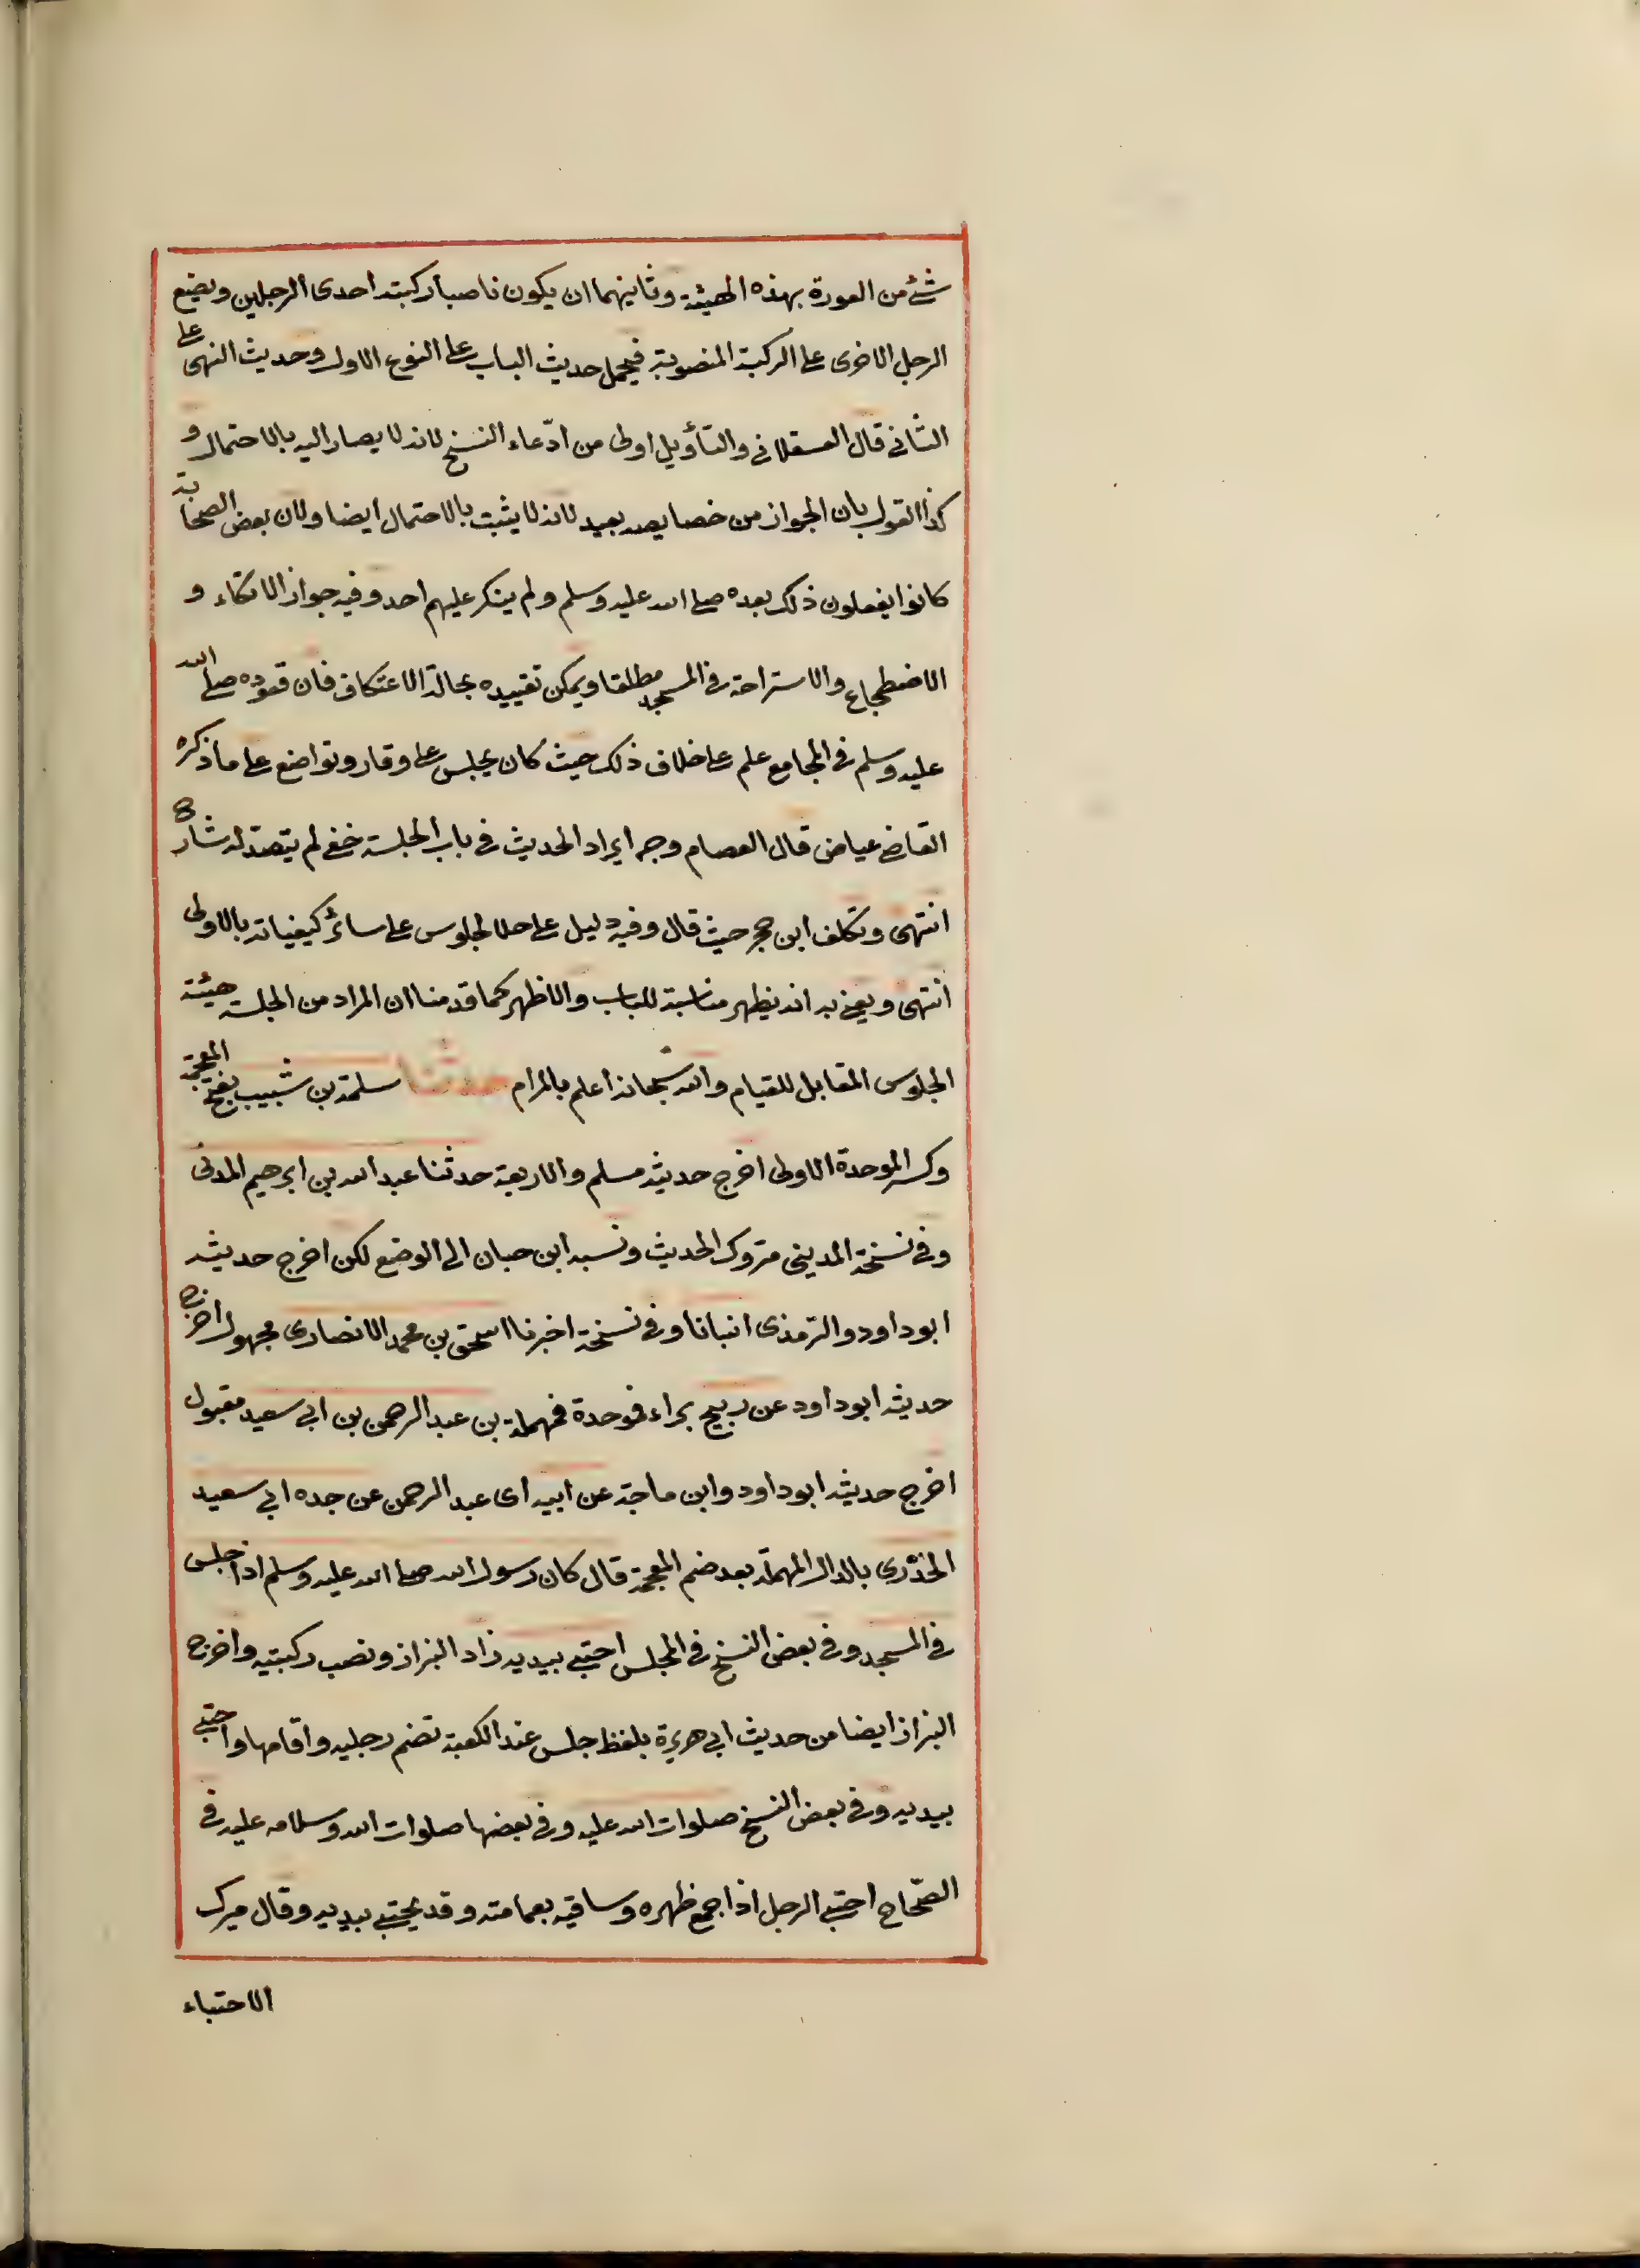 شئ من العورة بهذه الهيئة وثانيهما ان يكون ناصبا ركبته احدى الرجلين ويضع
الرجل الاخرى على الركبة المنصوبة فيحمل حديث الباب على النوع الاول وحديث النهى على
الثانى قال العسقلانى والتأويل اولى من ادّعاء النسخ لانه لا يصار اليه بالاحتمال و
كذا القول بان الجواز من خصايصه بعيد لانه لا يثبت بالاحتمال ايضا ولان بعض الصحابة
كانوا يفعلون ذلك بعده صلى الله عليه وسلم ولم ينكر عليهم احد وفيه جواز الاتكاء و
الاضطجاع والاستراحة فى المسجد مطلقا ويمكن تقييده بحالة الاعتكاف فان قعوده صلى الله
عليه وسلم فى المجامع علم على خلاف ذلك حيث كان يجلس على وقار وتواضع على ما ذكره
القاضى عياض قال العصام وجه ايراد الحديث فى باب الجلسة خفى لم يتصد له شارح
انتهى وتكلف ابن حجر حيث قال وفيه دليل على حل الجلوس على سائر كيفياته بالاولى
انتهى ويعنى به انه يظهر مناسبة للباب والاظهر كما قدمنا ان المراد من الجلسة هيئة
الجلوس المقابل للقيام والله سبحانه اعلم بالمرام حدثنا سلمة بن شبيب بفتح المعجمة
وكسر الموحدة الاولى اخرج حديثه مسلم والاربعة حدثنا عبد الله بن ابرهيم المدنى
وفى نسخة المدينى متروك الحديث ونسبه ابن حبان الى الوضع لكن اخرج حديثه
ابو داود والترمذى انبانا وفى نسخة اخبرنا اسحق بن محمد الانصارى مجهول اخرج
حديثه ابو داود عن ربيح براء فموحدة فمهملة بن عبد الرحمن بن ابى سعيد مقبول
اخرج حديثه ابو داود وابن ماجة عن ابيه اى عبد الرحمن عن جده ابى سعيد
الخدرى بالدال المهملة بعد ضم المعجمة قال كان رسول الله صلى الله عليه وسلم اذا جلس
فى المسجد وفى بعض النسخ فى المجلس احتبى بيديه زاد البزاز ونصب ركبتيه واخرج
البزاز ايضا من حديث ابى هريرة بلفظ جلس عند الكعبة تضم رجليه واقامها واحتبى
بيديه وفى بعض النسخ صلوات الله عليه وفى بعضها صلوات الله وسلامه عليه فى
الصّحاح احتبى الرجل اذا جمع ظهره وساقيه بعمامته وقد يحتبى بيديه وقال ميرك
الاحتباء